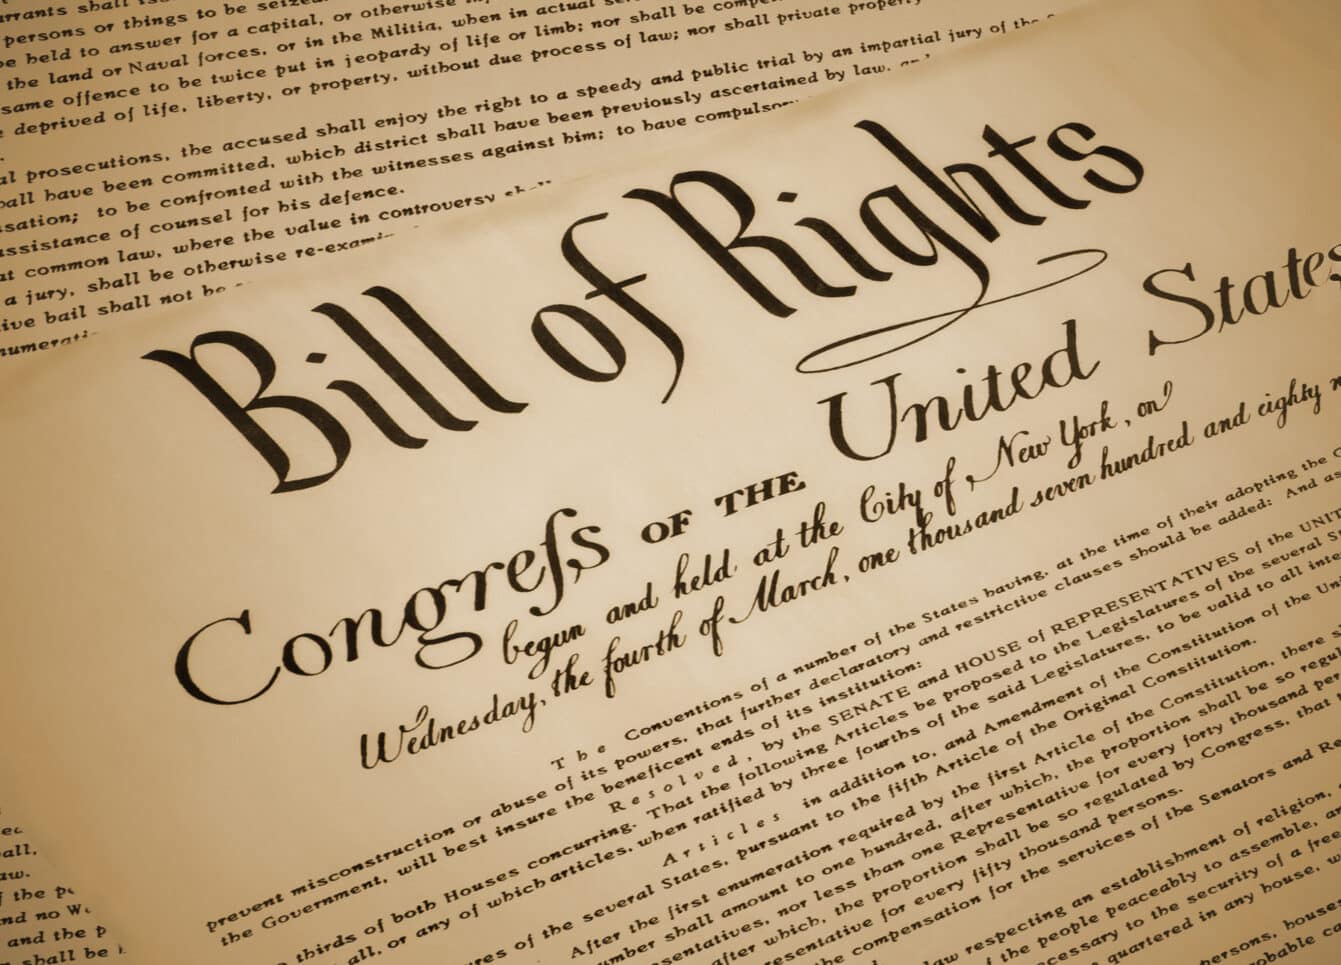 rrants shall
persons or things to be seized
be held to answer for a capital, or otherwise
the land or Naval forces, or in the Militia, when in actual
same offence to be twice put in jeopardy of life or limb; nor shall be
deprived of life, liberty, or property, without due process of law; nor shall private property
al prosecutions, the accused shall enjoy the right to a speedy and public trial by an impartial jury of the
hall have been committed, which district shall have been previously ascertained by law,
sation; to be confronted with the witnesses against him; to have compulsor
assistance of counsel for his defence.
at common law, where the value in controversy
a jury, shall be otherwise re-exami
ive bail shall not be
numerati
Bill of Rights
Congreſs OF THE United States
begun and held at the City of New York, on
Wednesday, the fourth of March, one thousand seven hundred and eighty n
The Conventions of a number of the States having, at the time of their adopting the C
prevent misconstruction or abuse of its powers, that further declaratory and restrictive clauses should be added: And as
the Government, will best insure the beneficent ends of its institution:
Resolved, by the SENATE and HOUSE of REPRESENTATIVES of the UNIT
thirds of both Houses concurring. That the following Articles be proposed to the Legislatures of the several St
all, or any of which articles, when ratified by three fourths of the said Legislatures, to be valid to all inte
Articles in addition to, and Amendment of the Constitution of the Uni
res of the several States, pursuant to the fifth Article of the Original Constitution.
After the first enumeration required by the first Article of the Constitution, there
mber shall amount to one hundred, after which, the proportion shall be so regul
sentatives, nor less than one Representative for every forty thousand per
after which, the proportion shall be so regulated by Congress, that
esentative for every fifty thousand persons.
the compensation for the services of the Senators and Re
law respecting an establishment of religion,
the people peaceably to assemble, a
cessary to the security of a free
quartered in any house, w
persons, house
obable ca
ec
all,
aw.
f the pe
nd no W
and the p
shall be